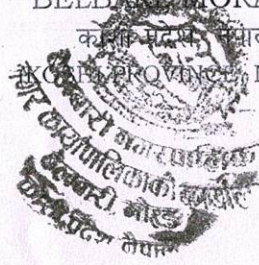 BELBARI, MORA
कोशी प्रदेश, नेपाल
KOSHI PROVINCE, N
बेलबारी नगरपालिका
नगर कार्यपालिकाको कार्यालय
बेलबारी, मोरङ
कोशी प्रदेश, नेपाल